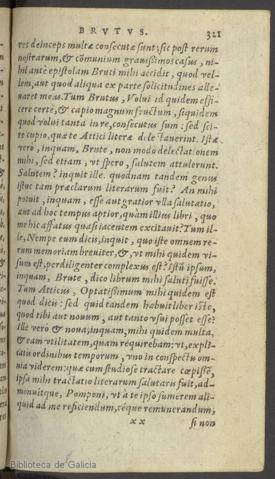 BRVTVS. 321
res deinceps multæ consecutæ sunt: sic post rerum
nostrarum, & cõmunium grauissimos casus, ni-
hil ante epistolam Bruti mihi accidit, quod vel-
lem, aut quod aliqua ex parte solicitudines alle-
uaret meas. Tum Brutus, Volui id quidem effi-
cere certè, & capio magnum fructum, siquidem
quod volui tanta in re, consecutus sum: sed sci-
re cupio, quæ te Attici literæ delectauerint. Istæ
vero, inquam, Brute, non modo delectationem
mihi, sed etiam, vt spero, salutem attulerunt.
Salutem? inquit ille. quodnam tandem genus
istuc tam præclarum literarum fuit? An mihi
potuit, inquam, esse aut gratior vlla salutatio,
aut ad hoc tempus aptior, quàm illius libri, quo
me hic affatus quasi iacentem excitauit? Tum il-
le, Nempe eum dicis, inquit, quo iste omnem re-
rum memoriam breuiter, &, vt mihi quidem vi-
sum est, perdiligenter complexus est? Istũ ipsum,
inquam, Brute, dico librum mihi saluti fuisse.
Tum Atticus, Optatissimum mihi quidem est
quod dicis: sed quid tandem habuit liber iste,
quod tibi aut nouum, aut tanto vsui posset esse?
Ille vero & noua, inquam, mihi quidem multa,
& eam vtilitatem, quam requirebam: vt, expli-
catis ordinibus temporum, vno in conspectu om-
nia viderem: quæ cum studiose tractare cœpissẽ,
ipsa mihi tractatio literarum salutaris fuit, ad-
monuitque, Pomponi, vt à te ipso sumerem ali-
quid ad me reficiendum, téque remunerandum,
xx si non
Biblioteca de Galicia